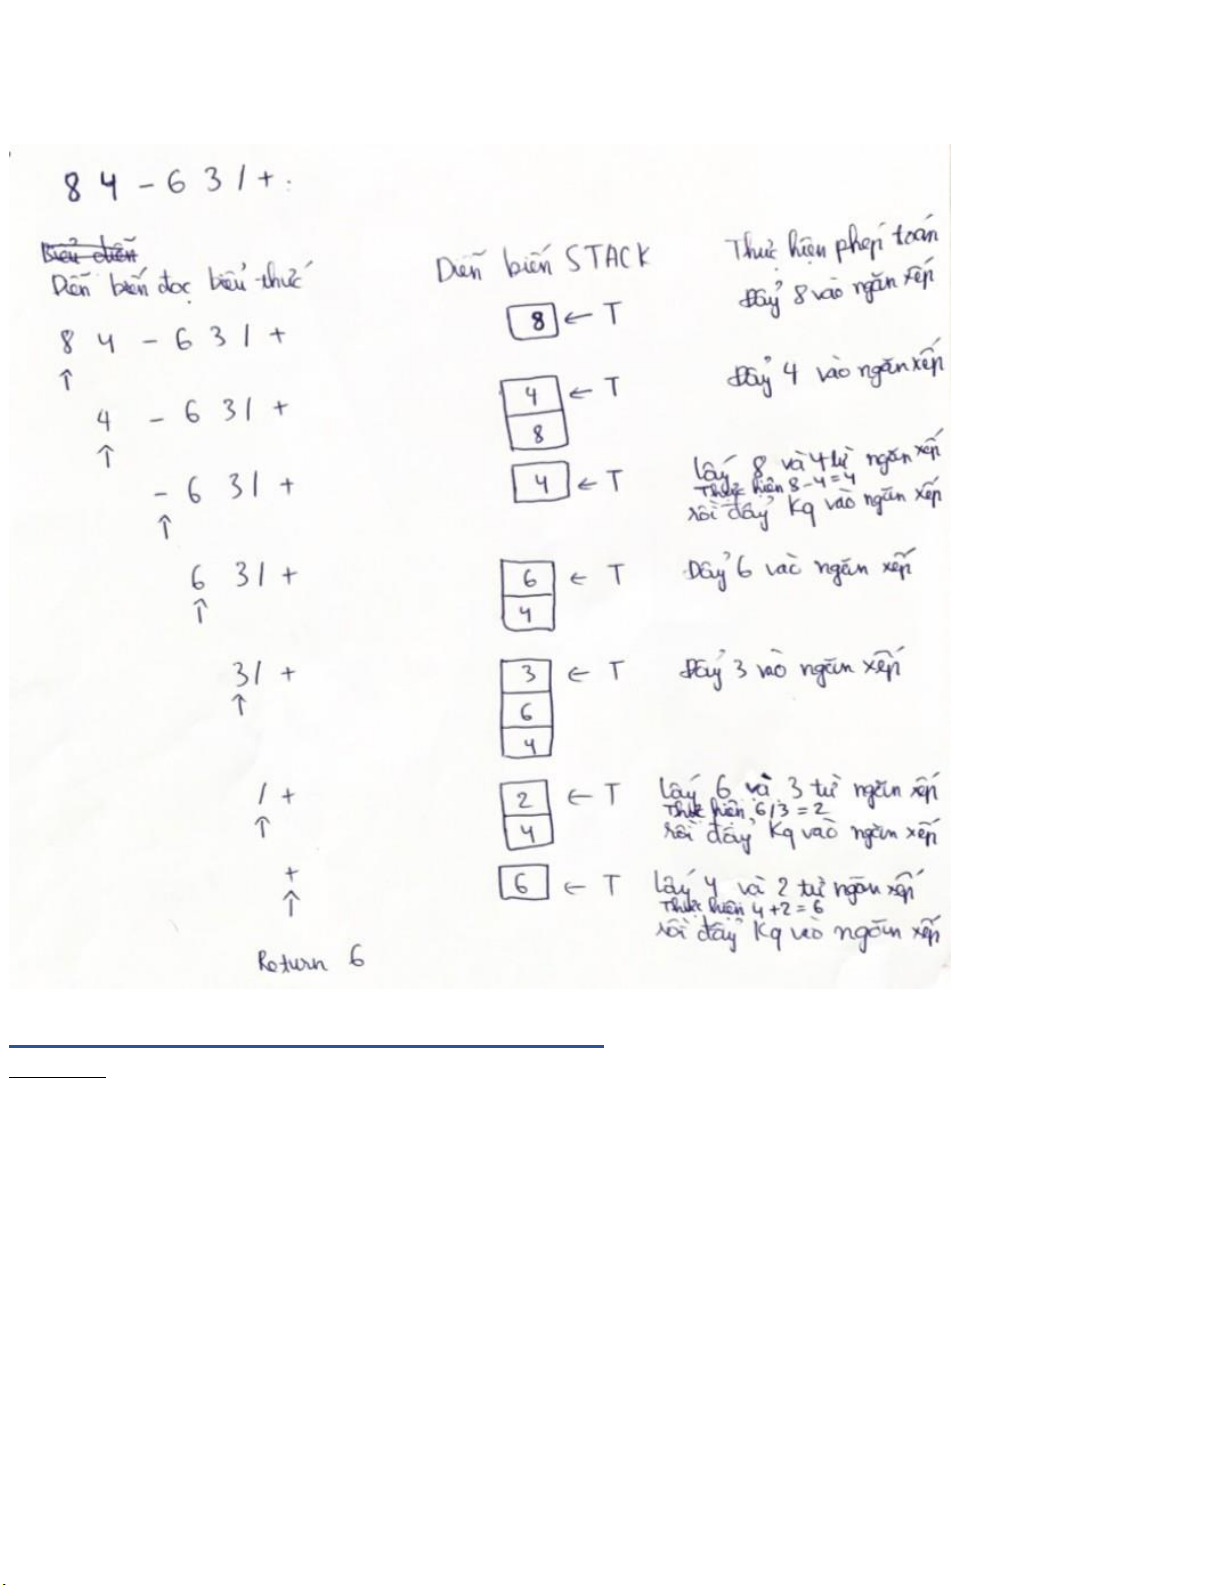 8 4 - 6 3 / + :
Diễn biến đọc biểu thức
Diễn biến STACK
Thực hiện phép toán
8 4 - 6 3 / +
↑
8 ← T
Đẩy 8 vào ngăn xếp
4 - 6 3 / +
↑
4 ← T
8
Đẩy 4 vào ngăn xếp
- 6 3 / +
↑
4 ← T
Lấy 8 và 4 từ ngăn xếp
Thực hiện 8 - 4 = 4
rồi đẩy Kq vào ngăn xếp
6 3 / +
↑
6 ← T
4
Đẩy 6 vào ngăn xếp
3 / +
↑
3 ← T
6
4
Đẩy 3 vào ngăn xếp
/ +
↑
2 ← T
4
Lấy 6 và 3 từ ngăn xếp
Thực hiện 6 / 3 = 2
rồi đẩy Kq vào ngăn xếp
+
↑
6 ← T
Lấy 4 và 2 từ ngăn xếp
Thực hiện 4 + 2 = 6
rồi đẩy Kq vào ngăn xếp
Return 6